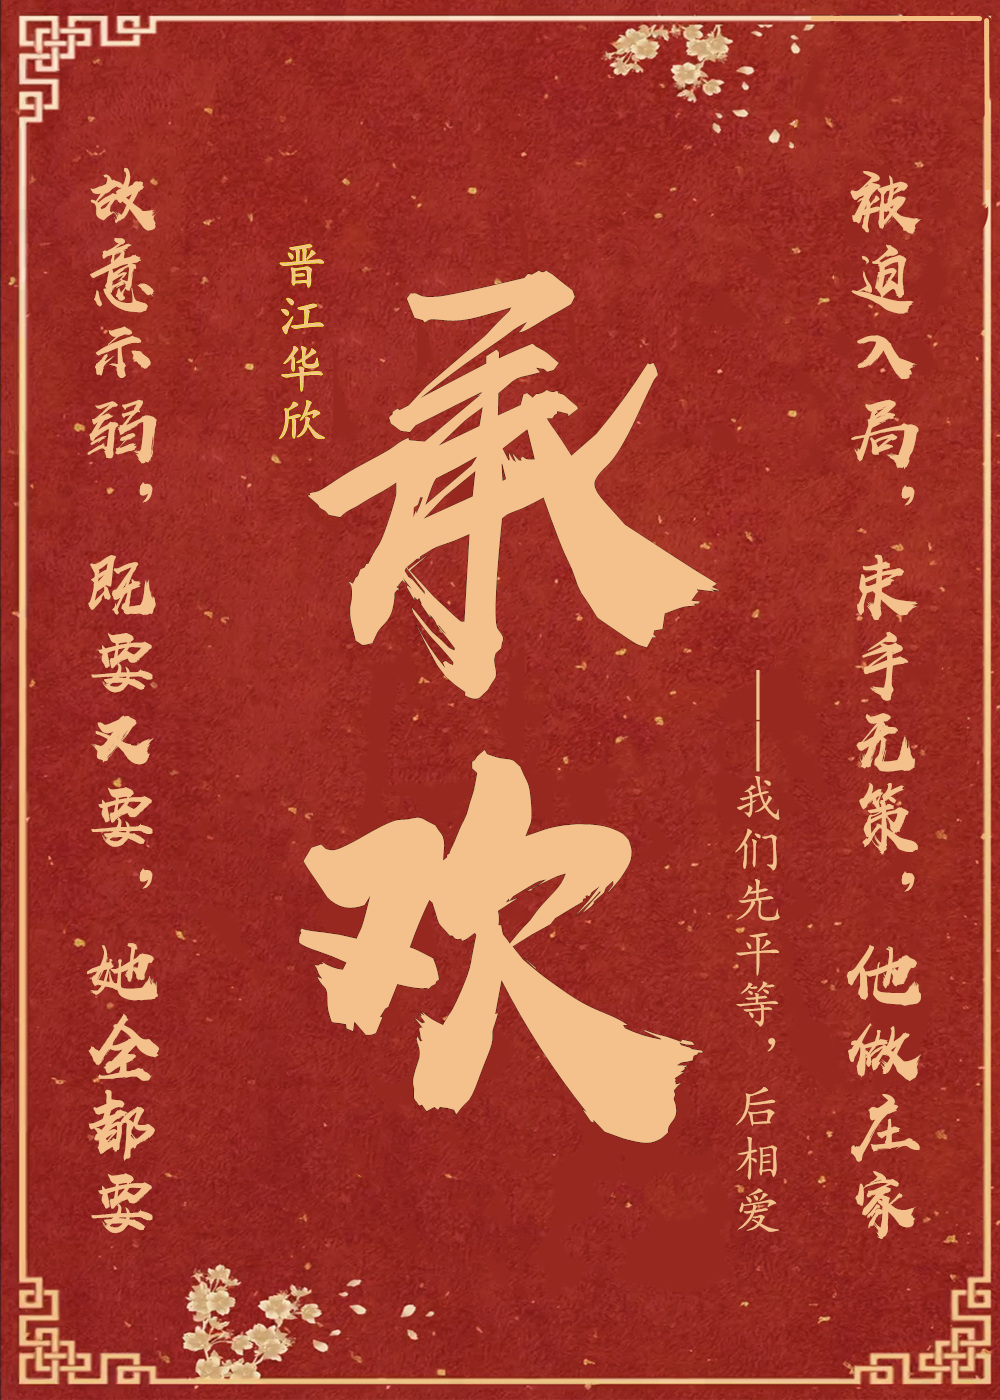 被迫入局，束手无策，他做庄家
——我们先平等，后相爱
承欢
晋江华欣
故意示弱，既要又要，她全都要